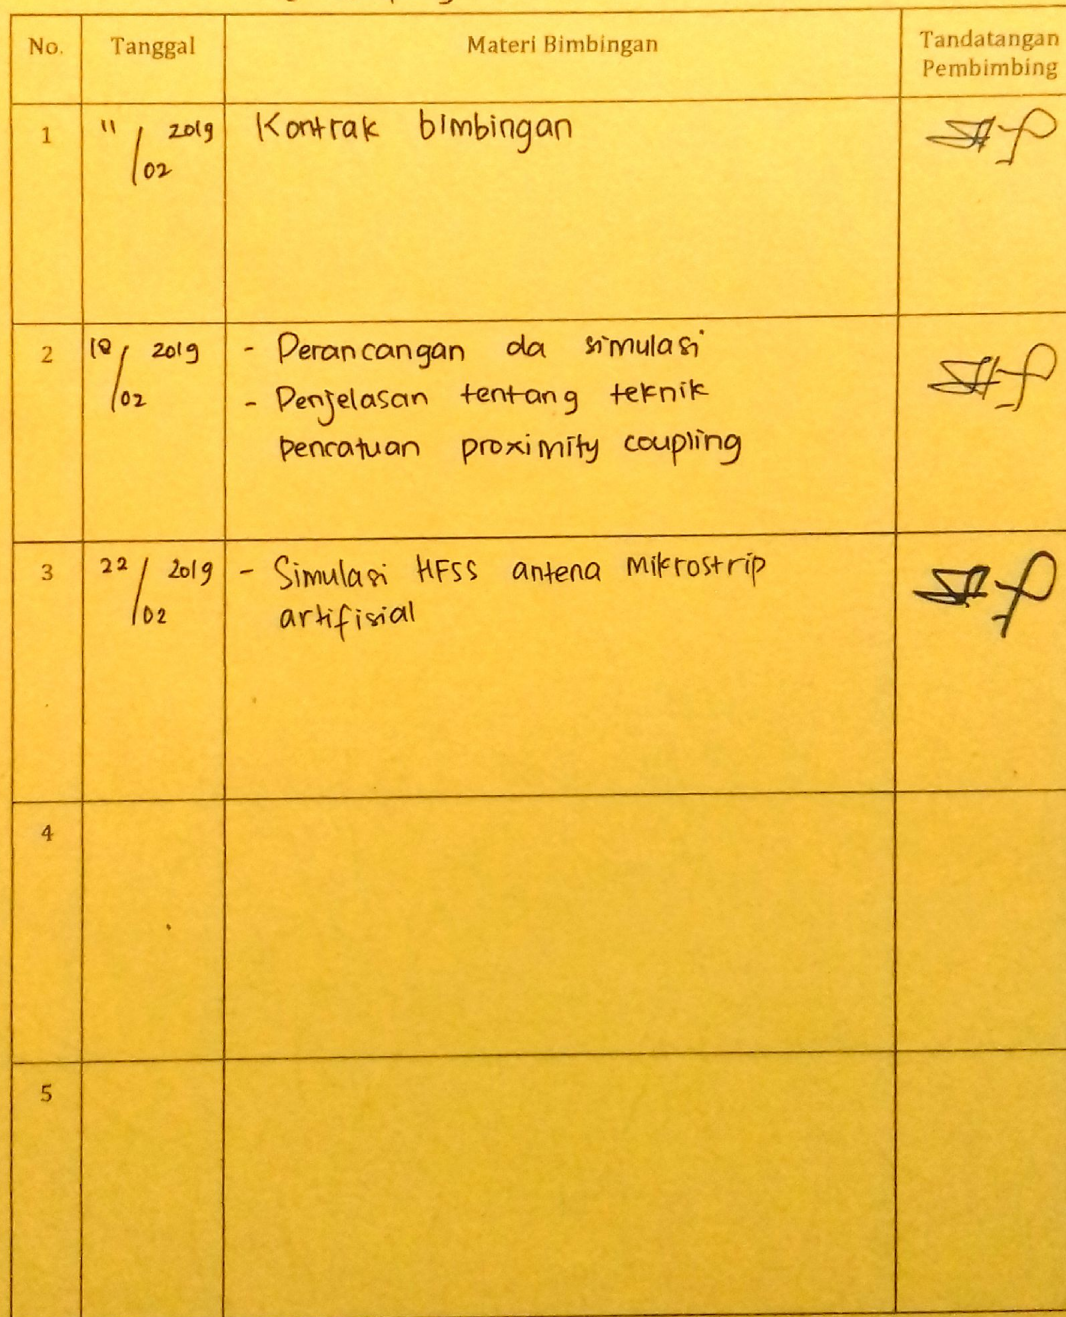 No. Tanggal Materi Bimbingan Tandatangan Pembimbing
1 11/02 2019 Kontrak bimbingan
2 18/02 2019 - Perancangan da simulasi
- Penjelasan tentang teknik
pencatuan proximity coupling
3 22/02 2019 - Simulasi HFSS antena Mikrostrip
artifisial
4
5